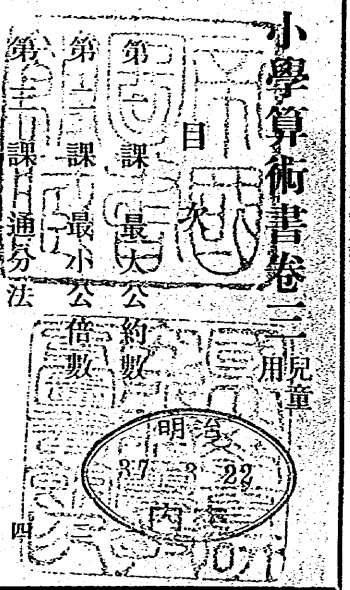 小學算術書卷三 兒童用
目次
第一課 最大公約數
第二課 最小公倍數
第三課 通分法 四
明治
37 3 22
內交